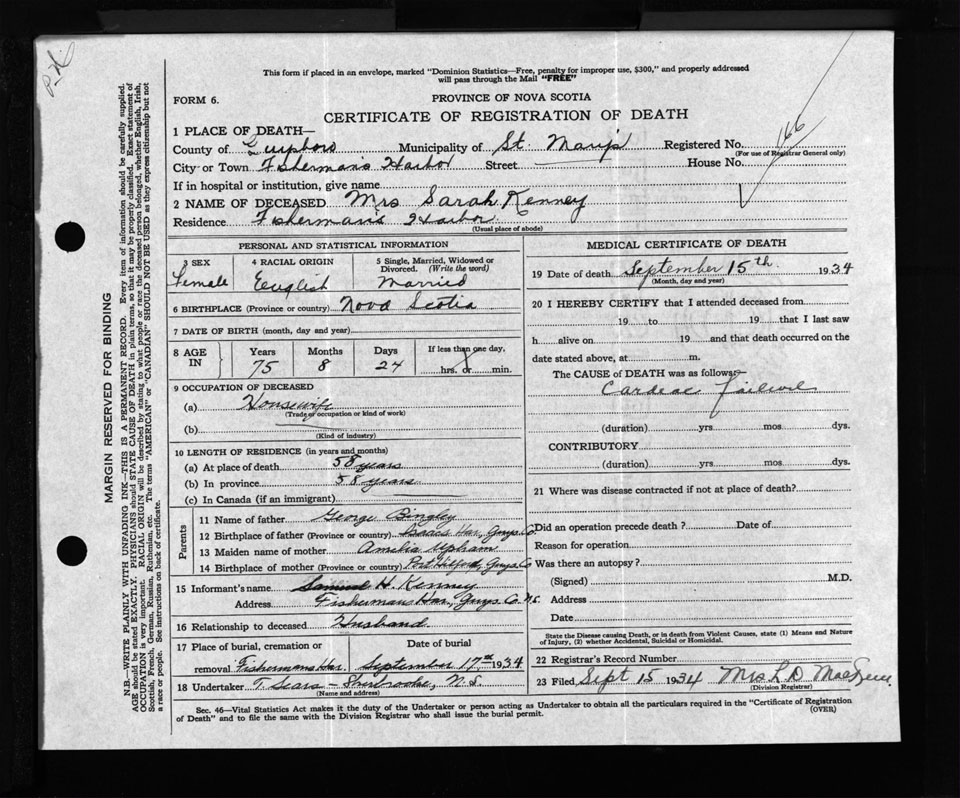 This form if placed in an envelope, marked "Dominion Statistics—Free, penalty for improper use, $300," and properly addressed
will pass through the Mail "FREE"
FORM 6.
PROVINCE OF NOVA SCOTIA
CERTIFICATE OF REGISTRATION OF DEATH
166
1 PLACE OF DEATH—
County of Guysboro Municipality of St. Mary's Registered No.
(For use of Registrar General only)
City or Town Fisherman's Harbor Street House No.
If in hospital or institution, give name
2 NAME OF DECEASED Mrs Sarah Kenney
Residence Fisherman's Harbor
(Usual place of abode)
PERSONAL AND STATISTICAL INFORMATION
3 SEX 4 RACIAL ORIGIN 5 Single, Married, Widowed or Divorced. (Write the word)
Female English Married
6 BIRTHPLACE (Province or country) Nova Scotia
7 DATE OF BIRTH (month, day and year)
8 AGE IN Years Months Days If less than one day,
75 8 24 hrs. or min.
9 OCCUPATION OF DECEASED
(a) Housewife
(Trade or occupation or kind of work)
(b)
(Kind of industry)
10 LENGTH OF RESIDENCE (in years and months)
(a) At place of death 58 years
(b) In province 58 years
(c) In Canada (if an immigrant)
Parents
11 Name of father George Bingley
12 Birthplace of father (Province or country) Isaacs Har, Guys Co.
13 Maiden name of mother Amelia Upham
14 Birthplace of mother (Province or country) Port Hilford, Guys Co
15 Informant's name Samuel H. Kenney
Address Fishermans Har, Guys. Co. N.S.
16 Relationship to deceased Husband
17 Place of burial, cremation or removal Date of burial
Fishermans Har. September 17th 1934
18 Undertaker T. Sears - Sherbrooke, N.S.
(Name and address)
MEDICAL CERTIFICATE OF DEATH
19 Date of death September 15th 1934
(Month, day and year)
20 I HEREBY CERTIFY that I attended deceased from
19 to 19 that I last saw
h alive on 19 and that death occurred on the
date stated above, at m.
The CAUSE of DEATH was as follows:—
Cardeac failure
(duration) yrs mos dys.
CONTRIBUTORY
(duration) yrs. mos. dys.
21 Where was disease contracted if not at place of death?
Did an operation precede death ? Date of
Reason for operation
Was there an autopsy?
(Signed) M.D.
Address
Date
State the Disease causing Death, or in death from Violent Causes, state (1) Means and Nature
of Injury, (2) whether Accidental, Suicidal or Homicidal.
22 Registrar's Record Number
23 Filed, Sept 15 1934 Mrs L D
(Division Registrar)
Sec. 46—Vital Statistics Act makes it the duty of the Undertaker or person acting as Undertaker to obtain all the particulars required in the "Certificate of Registration
of Death" and to file the same with the Division Registrar who shall issue the burial permit.
(OVER)
MARGIN RESERVED FOR BINDING
N.B.—WRITE PLAINLY WITH UNFADING INK—THIS IS A PERMANENT RECORD. Every item of information should be carefully supplied.
AGE should be stated EXACTLY. PHYSICIANS should STATE CAUSE OF DEATH in plain terms, so that it may be properly classified. Exact statement of
OCCUPATION is very important. RACIAL ORIGIN will be described by stating to what people or race the deceased person belonged, whether English, Irish,
Scottish, French, German, Russian, Ruthenian, etc. The terms "AMERICAN" or "CANADIAN" SHOULD NOT BE USED as they express citizenship but not
a race or people. See instructions on back of certificate.